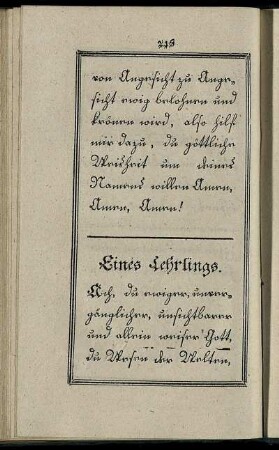 213
von Angesicht zu Ange-
sicht ewig belohnen und
krönen wird, also hilf
mir dazu, du göttliche
Weisheit um deines
Namens willen Amen,
Amen, Amen!
Eines Lehrlings.
Ach, du ewiger, unver-
gänglicher, unsichtbarer
und allein weiser Gott,
du Wesen der Welten,